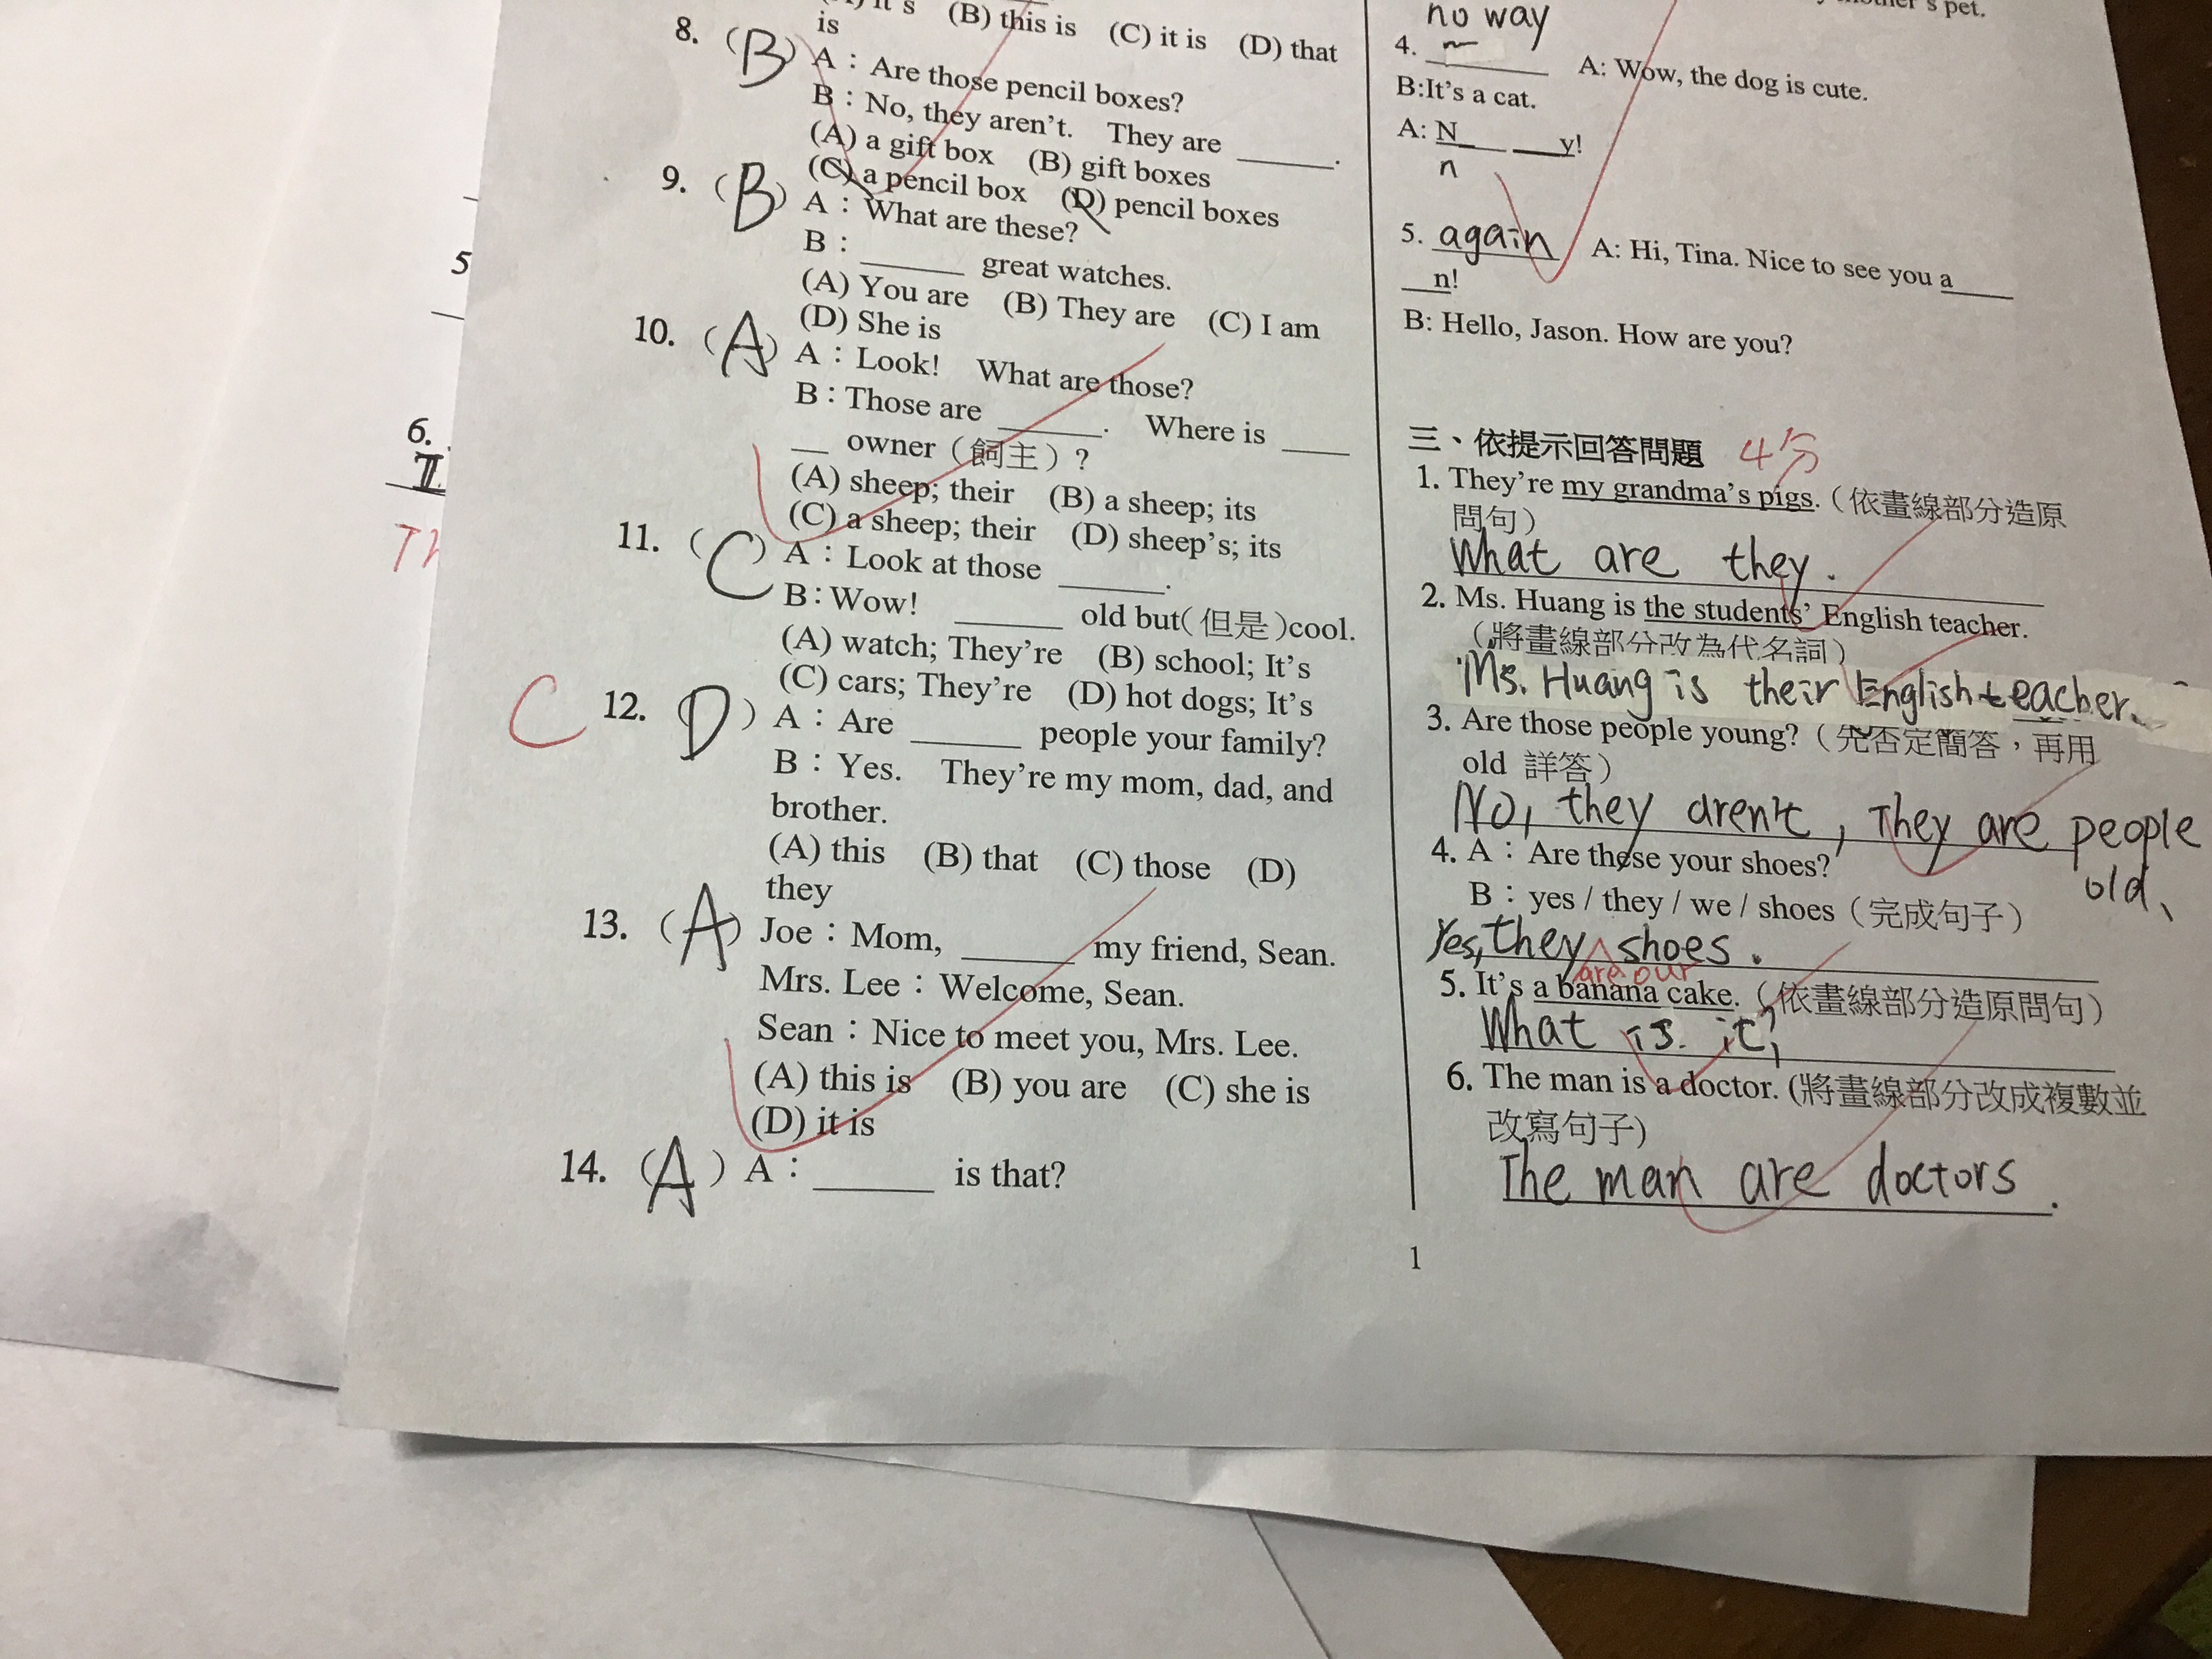 it's (B) this is (C) it is (D) that
is
8. (B) A：Are those pencil boxes?
B：No, they aren't. They are ______.
(A) a gift box (B) gift boxes
(C) a pencil box (D) pencil boxes
9. (B) A：What are these?
B：______ great watches.
(A) You are (B) They are (C) I am
(D) She is
10. (A) A：Look! What are those?
B：Those are ______. Where is ____
__ owner（飼主）?
(A) sheep; their (B) a sheep; its
(C) a sheep; their (D) sheep's; its
11. (C) A：Look at those ______.
B：Wow! ______ old but(但是)cool.
(A) watch; They're (B) school; It's
(C) cars; They're (D) hot dogs; It's
C 12. (D) A：Are ______ people your family?
B：Yes. They're my mom, dad, and
brother.
(A) this (B) that (C) those (D)
they
13. (A) Joe：Mom, ______ my friend, Sean.
Mrs. Lee：Welcome, Sean.
Sean：Nice to meet you, Mrs. Lee.
(A) this is (B) you are (C) she is
(D) it is
14. (A) A：______ is that?
's pet.
no way
4. ______ A: Wow, the dog is cute.
B:It's a cat.
A: N___ ___y!
n
5. again A: Hi, Tina. Nice to see you a____
__n!
B: Hello, Jason. How are you?
三、依提示回答問題 4分
1. They're my grandma's pigs.（依畫線部分造原
問句）
What are they.
2. Ms. Huang is the students' English teacher.
（將畫線部分改為代名詞）
Ms. Huang is their English teacher.
3. Are those people young?（先否定簡答，再用
old 詳答）
No, they aren't, They are people
old.
4. A：Are these your shoes?
B：yes / they / we / shoes（完成句子）
Yes, they shoes.
are our
5. It's a banana cake.（依畫線部分造原問句）
What is it?
6. The man is a doctor. (將畫線部分改成複數並
改寫句子)
The man are doctors.
1
5
6.
I
Th